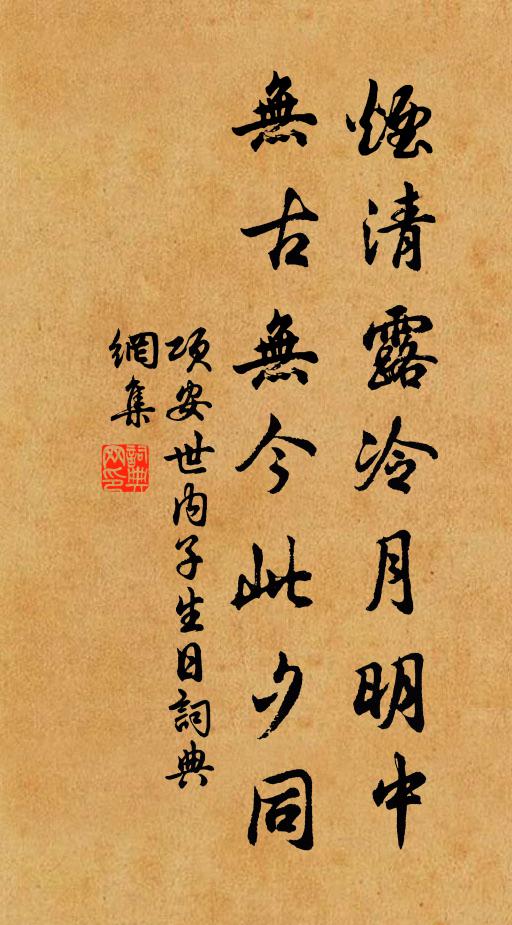 煙清露冷月明中
無古無今此夕同
項安世內子生日詞典
網集
詞典網印